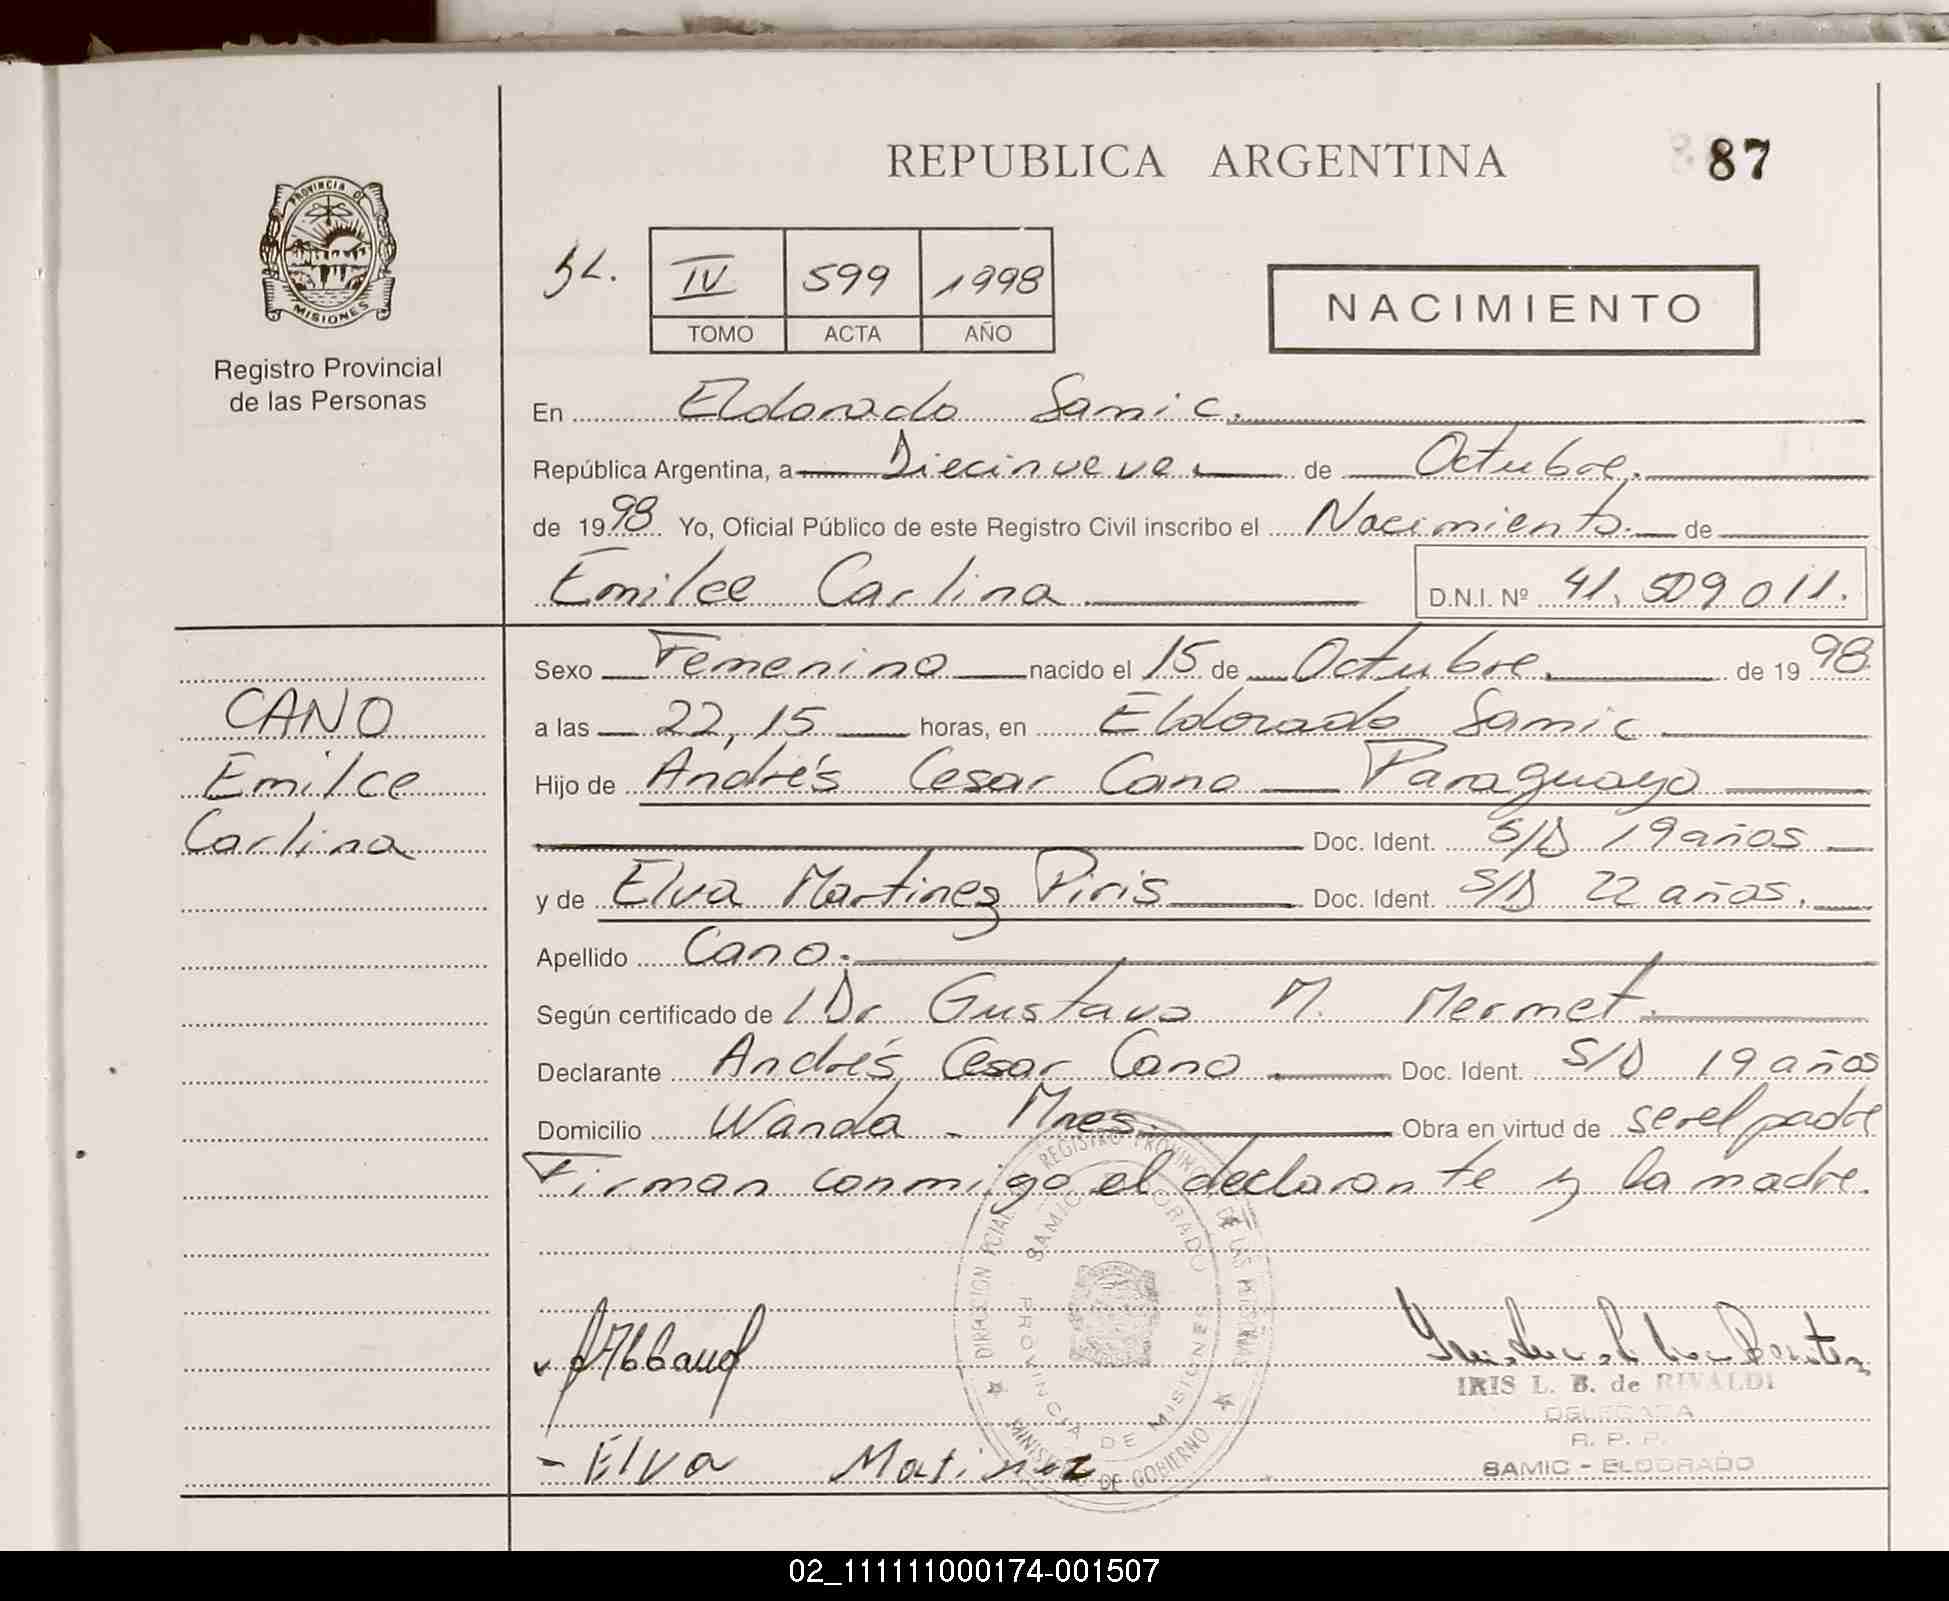 REPUBLICA ARGENTINA
87
PROVINCIA DE
MISIONES
Registro Provincial
de las Personas
IV 599 1998
TOMO ACTA AÑO
NACIMIENTO
En Eldorado Samic.
República Argentina, a Diecinueve de Octubre.
de 1998 Yo, Oficial Público de este Registro Civil inscribo el Nacimiento de
Emilce Carlina D.N.I. Nº 41.509011.
Sexo Femenino nacido el 15 de Octubre. de 1998
CANO
a las 22,15 horas, en Eldorado Samic
Emilce
Hijo de Andrés Cesar Cano Paraguayo
Carlina
Doc. Ident. S/D 19 años
y de Elva Martinez Piris Doc. Ident. S/D 22 años.
Apellido Cano.
Según certificado de l Dr Gustavo M. Mermet.
Declarante Andrés Cesar Cano Doc. Ident. S/D 19 años
Domicilio Wanda - Mnes. Obra en virtud de ser el padre
Firman conmigo el declarante y la madre.
DIRECCION PCIAL. REGISTRO PROVINCIAL DE LAS PERSONAS
SAMIC ELDORADO
PROVINCIA DE MISIONES
MINISTERIO DE GOBIERNO
IRIS L. B. de RIVALDI
DELEGADA
R. P. P.
SAMIC - ELDORADO
- Elva Matinez
02_111111000174-001507